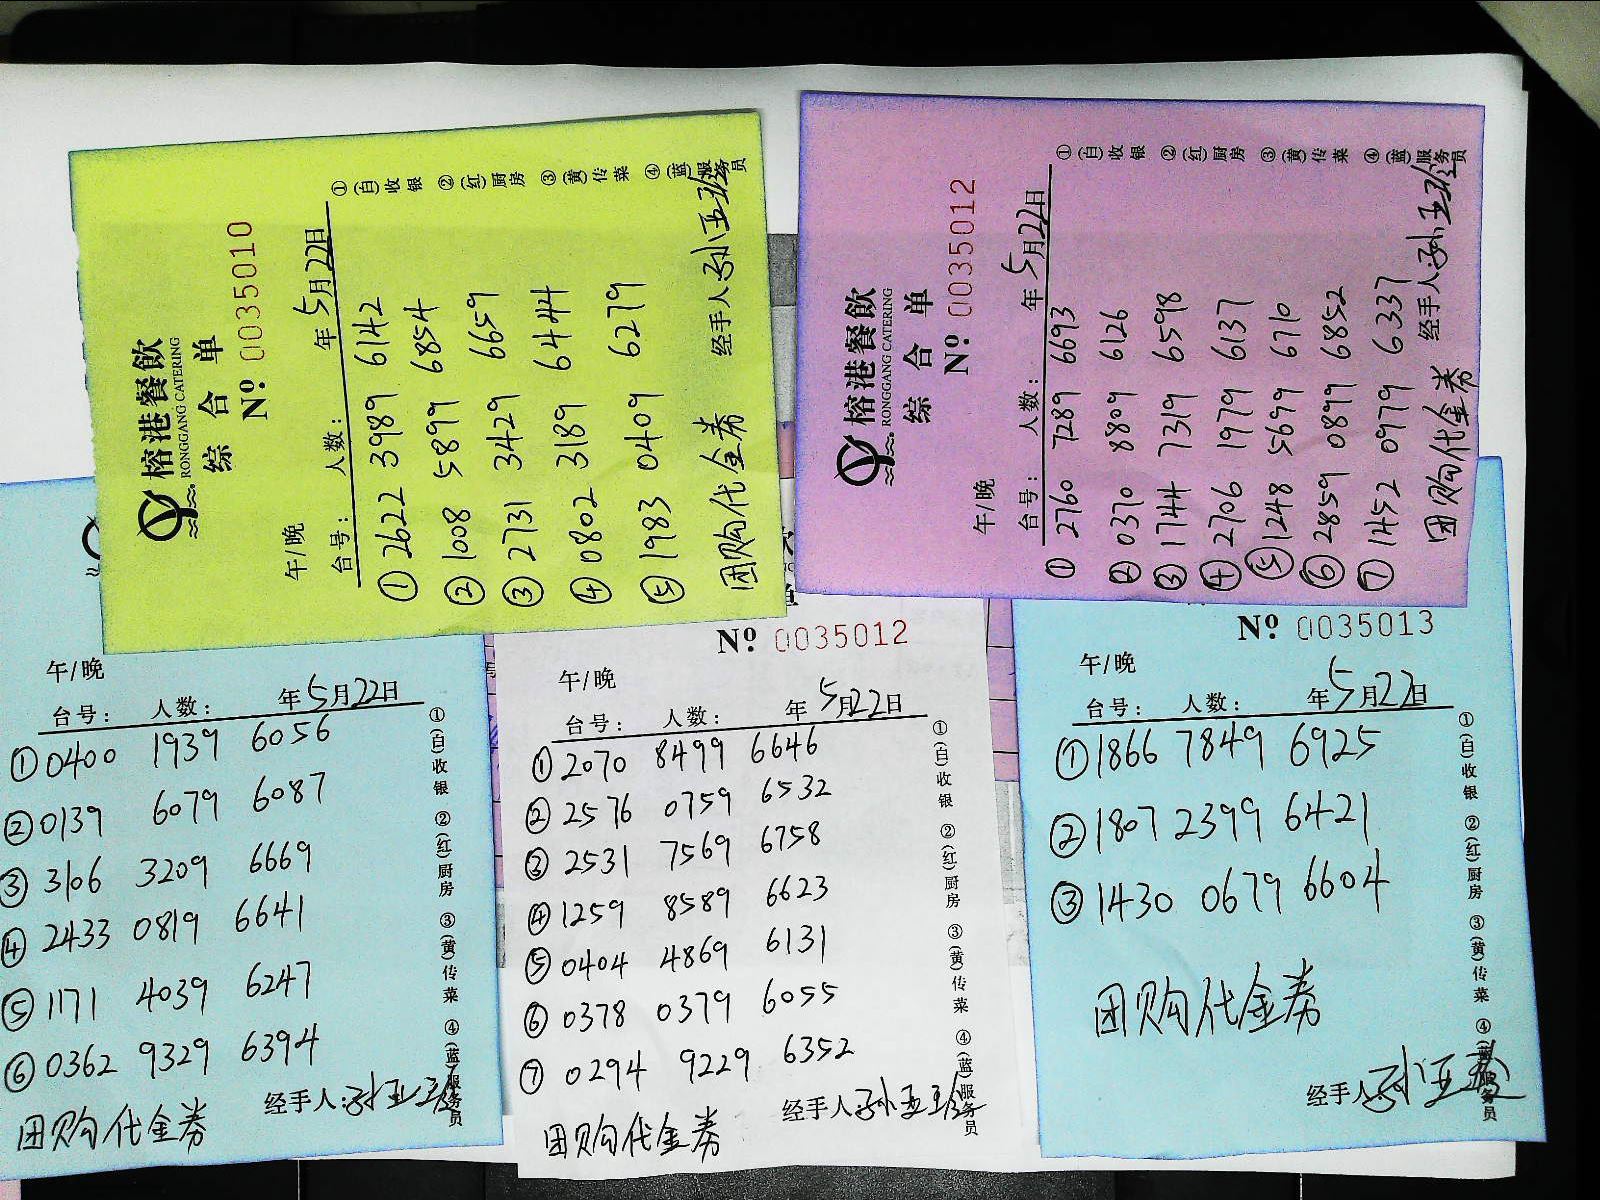 榕港餐飲
RONGGANG CATERING
综合单
Nº 0035010
午/晚
台号： 人数： 年5月22日
①2622 3989 6142
②1008 5899 6854
③2731 3429 6659
④0802 3189 6444
⑤1983 0409 6279
团购代金券 经手人:孙玉玲
①(白)收银 ②(红)厨房 ③(黄)传菜 ④(蓝)服务员
榕港餐飲
RONGGANG CATERING
综合单
Nº 0035012
午/晚
台号： 人数： 年5月22日
①2760 7289 6693
②0370 8809 6126
③1744 7319 6598
④2706 1979 6137
⑤1248 5699 6710
⑥2859 0899 6852
⑦1452 0979 6337
团购代金券 经手人:孙玉玲
①(白)收银 ②(红)厨房 ③(黄)传菜 ④(蓝)服务员
午/晚
台号： 人数： 年5月22日
①0400 1939 6056
②0139 6079 6087
③3106 3209 6669
④2433 0819 6641
⑤1171 4039 6247
⑥0362 9329 6394
经手人:孙玉玲
团购代金券
①(白)收银 ②(红)厨房 ③(黄)传菜 ④(蓝)服务员
单
Nº 0035012
午/晚
台号： 人数： 年5月22日
①2070 8499 6646
②2576 0759 6532
③2531 7569 6758
④1259 8589 6623
⑤0404 4869 6131
⑥0378 0379 6055
⑦0294 9229 6352
经手人:孙玉玲
团购代金券
①(白)收银 ②(红)厨房 ③(黄)传菜 ④(蓝)服务员
Nº 0035013
午/晚
台号： 人数： 年5月22日
①1866 7849 6925
②1807 2399 6421
③1430 0679 6604
团购代金券
经手人:孙玉玲
①(白)收银 ②(红)厨房 ③(黄)传菜 ④(蓝)服务员